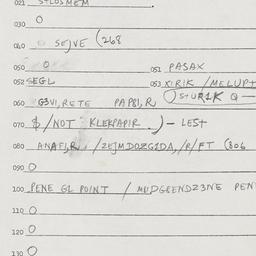 021 S+LOSMEM
030 O
040 SEJVE (268
050 O 051 PASAX
052 SEGL 053 XIRIK /MELUP+
060 G3VI,RETE PAPBI,R STUR1K Q —
070 $/NOT KLEKPAPIR.) – LES+
080 ANAFI,R /ZEJMDOZGIDA,/R/FT (806
090 O
100 PENE GL POINT / MUDGEENDZ3NE PEN
110 O
120 O
130 O